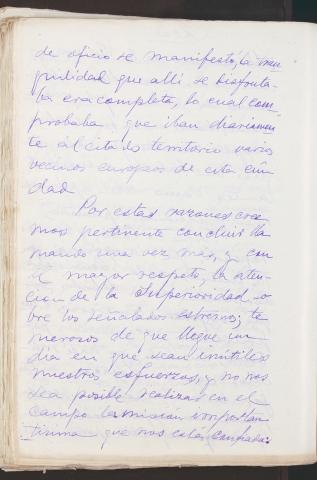 de oficio se manifestó, la im
punidad que allí se disfruta-
ba era completa, lo cual com
probaba que iban diariamen
te al citado territorio varios
vecinos europeos de esta ciu
dad
Por estas razones cree
mos pertinente concluir lla
mando una vez más, y con
el mayor respeto, la aten-
ción de la Superioridad so
bre los señalados extremos; te
merosos de que llegue un
día en que sean inútiles
nuestros esfuerzos, y no nos
sea posible realizar en el
campo la misión importan
tísima que nos está confiada.